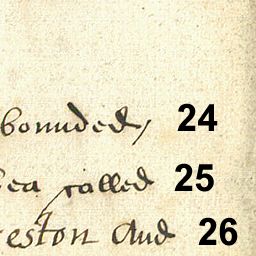 bounded, 24
ea called 25
eston And 26